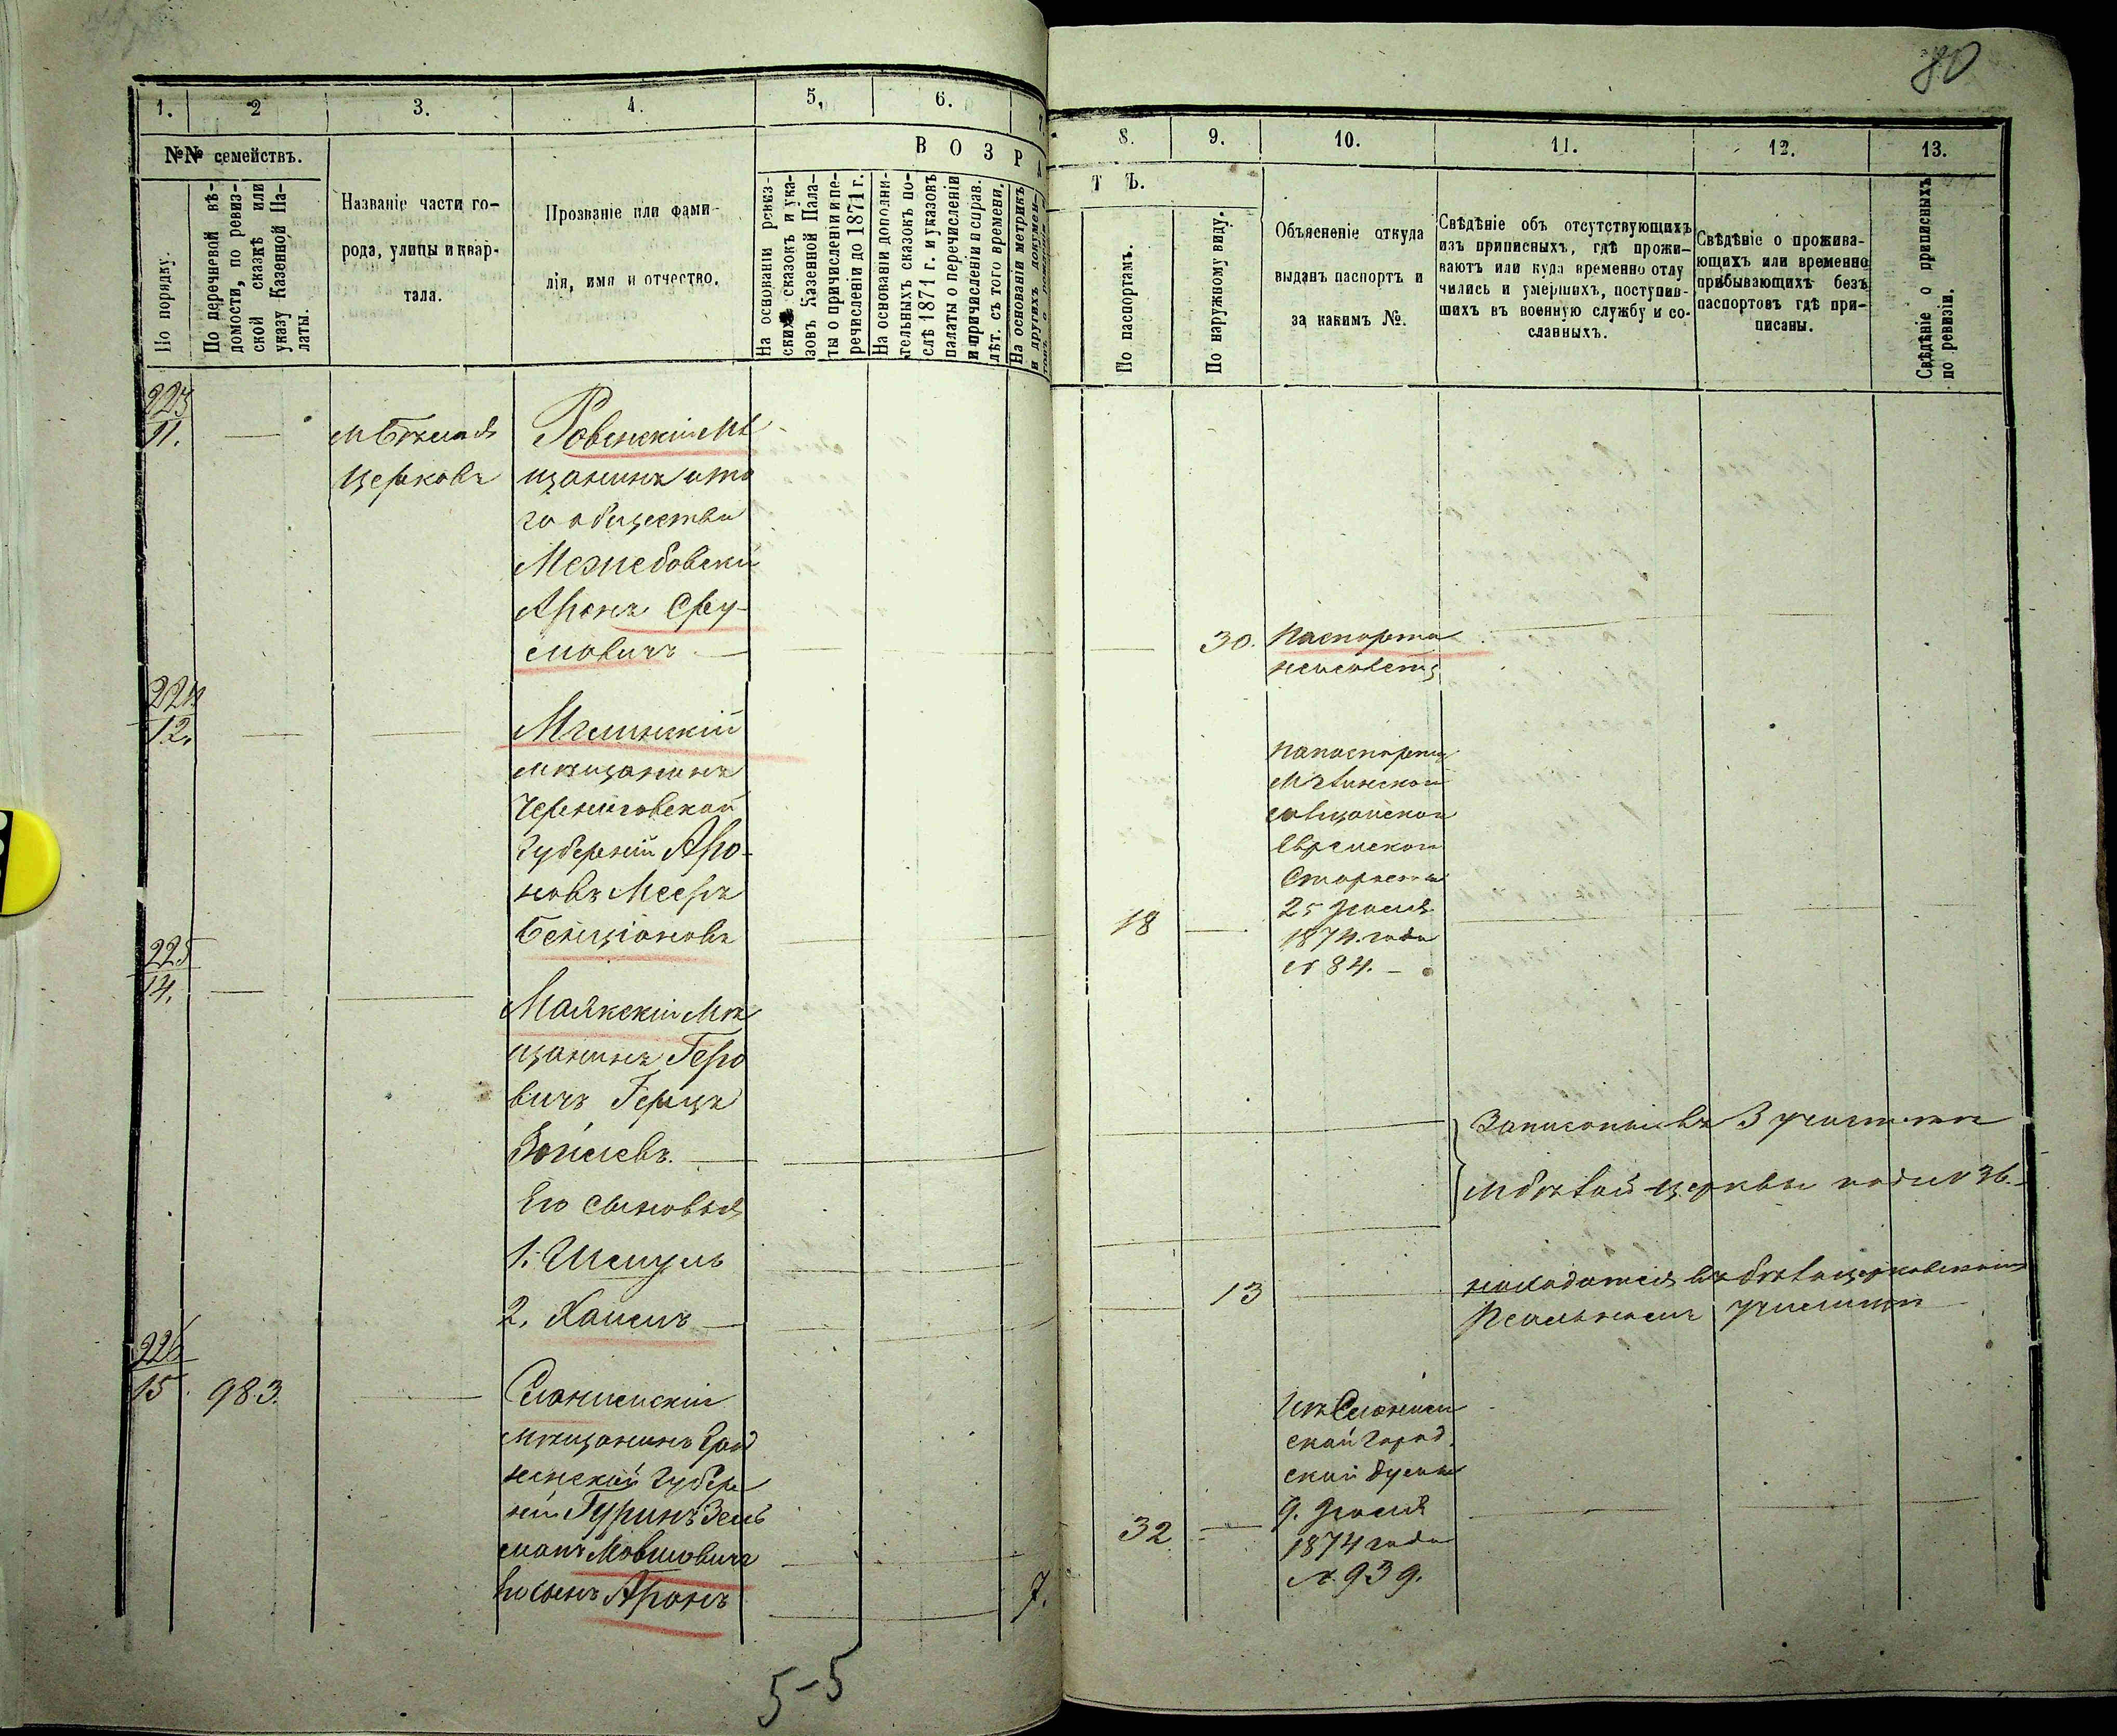 80
1. 2 3. 4. 5, 6. 7
№№ семействъ.
По порядку.
По перечневой вѣ-
домости, по ревиз-
ской сказкѣ или
указу Казенной Па-
латы.
Названіе части го-
рода, улицы и квар-
тала.
Прозваніе или фами-
лія, имя и отчество.
ВОЗРА
На основаніи ревиз-
скихъ сказокъ и ука-
зовъ Казенной Пала-
ты о причисленіи и пе-
речисленіи до 1871 г.
На основаніи дополни-
тельныхъ сказокъ по-
слѣ 1871 г. и указовъ
палаты о перечисленіи
и причисленіи и справ.
лѣт. съ того времени.
На основаніи метрикъ
и другихъ докумен-
товъ о рожденіи
8. 9. 10. 11. 12. 13.
ТЪ.
По паспортамъ.
По наружному виду.
Объясненіе откуда
выданъ паспортъ и
за какимъ №.
Свѣдѣніе объ отсутствующихъ
изъ приписныхъ, гдѣ прожи-
ваютъ или куда временно отлу
чились и умершихъ, поступив-
шихъ въ военную службу и со-
сланныхъ.
Свѣдѣніе о прожива-
ющихъ или временно
прибывающихъ безъ
паспортовъ гдѣ при-
писаны.
Свѣдѣніе о приписныхъ
по ревизіи.
223
11.
М Бѣлая
Церковь
Ровенскій мѣ
щанинъ
го общества
Межебовскій
Аронъ Сру-
лмовичъ
30.
Паспорта
224
12.
Мглинскій
мѣщанинъ
Черниговской
Губерніи Аро-
новъ Мееръ
Бенціоновъ
18
25 Іюля
1874. года
№ 84.
225
14.
Маякскій мѣ
щанинъ Геро
вичъ Герцъ
Его сыновья
1. Шмуль
2. Хаимъ
13
Записаны въ 3 участкѣ
м бѣлой церкви под № 36.
находятся въ бѣлоцерковскомъ
Реальномъ училищѣ
226
15. 983.
Слонимскій
мѣщанинъ Грод
ненской Губер
ніи Гуринъ Зель
манъ Мовшовичъ
Его сынъ Аронъ
7.
32
Изъ Слоним
ской Город
ской Думы
9. Іюля
1874 года
№ 939.
5-5